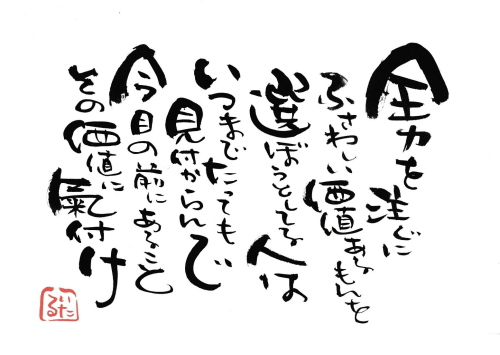 全力を注ぐに
ふさわしい価値あるもんを
選ぼうとしてる人は
いつまでたっても
見付からんで
今目の前にあること
その価値に氣付け